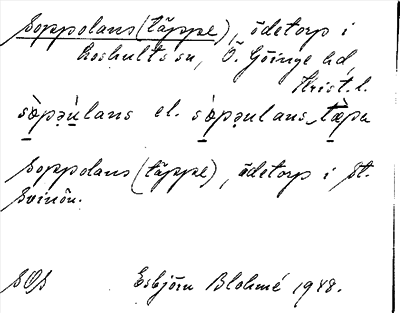 Soppolans(täppe), ödetorp i
Loshults sn, Ö. Göinge hd,
Krist. l.
sòpəùlans el. sòpəulans_tæpa
Soppolans(täppe), ödetorp i St.
Svinön.
SOS Esbjörn Blohmé 1948.